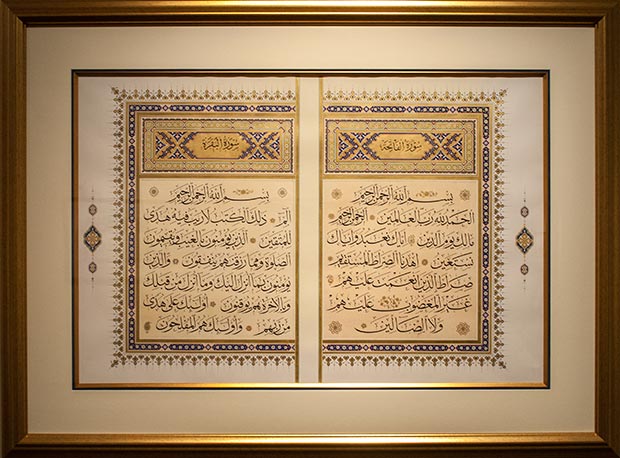 سورة الفاتحة
بسم الله الرحمن الرحيم
الحمد لله رب العالمين الرحمن الرحيم
مالك يوم الدين اياك نعبد واياك
نستعين اهدنا الصراط المستقيم
صراط الذين انعمت عليهم
غير المغضوب عليهم
ولا الضالين
سورة البقرة
بسم الله الرحمن الرحيم
الم ذلك الكتب لا ريب فيه هدى
للمتقين الذين يؤمنون بالغيب ويقيمون
الصلوة ومما رزقنهم ينفقون والذين
يؤمنون بما انزل اليك وما انزل من قبلك
وبالاخرة هم يوقنون اولئك على هدى
من ربهم واولئك هم المفلحون